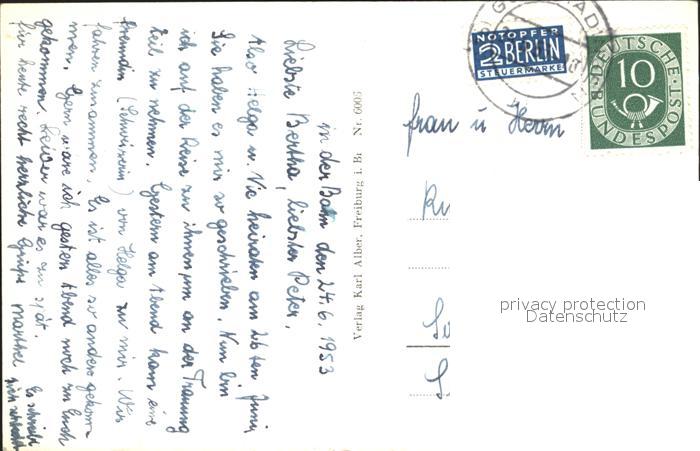 in der Bahn den 24.6.1953
Liebste Bertha, liebster Peter,
Also Helga u. Vic heiraten am 26ten Juni
Sie haben es mir so geschrieben. Nun bin
ich auf der Reise zu ihnen um an der Trauung
teil zu nehmen. Gestern am Abend kam eine
Freundin (Schweizerin) von Helga zu mir. Wir
fahren zusammen. Es ist alles so anders gekom-
men. Gern wäre ich gestern Abend noch zu Euch
gekommen. Leider war es zu spät.
Für heute recht herzliche Grüße
Es schreibt
sich schlecht
Verlag Karl Alber, Freiburg i. Br Nr. 6005
NOTOPFER
2 BERLIN
STEUERMARKE
DEUTSCHE
BUNDESPOST
10
Frau u Herrn
privacy protection
Datenschutz